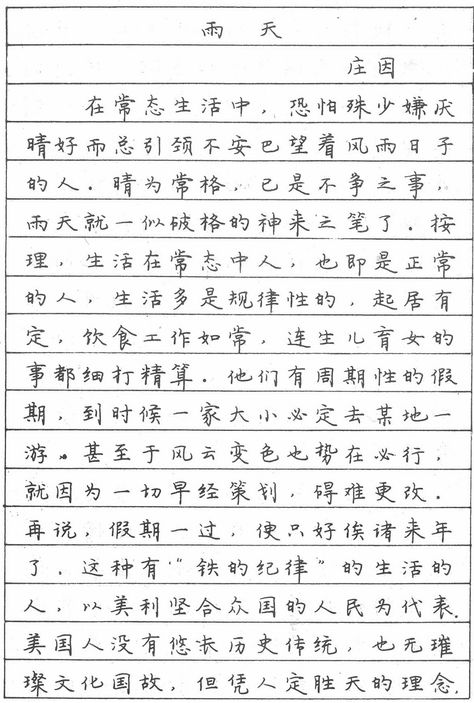 雨天
庄因
在常态生活中，恐怕殊少嫌厌
晴好而总引颈不安巴望着风雨日子
的人．晴为常格，已是不争之事，
雨天就一似破格的神来之笔了．按
理，生活在常态中人，也即是正常
的人，生活多是规律性的，起居有
定，饮食工作如常，连生儿育女的
事都细打精算．他们有周期性的假
期，到时候一家大小必定去某地一
游。甚至于风云变色也势在必行，
就因为一切早经策划，碍难更改．
再说，假期一过，便只好俟诸来年
了．这种有“铁的纪律”的生活的
人，以美利坚合众国的人民为代表．
美国人没有悠长历史传统，也无璀
璨文化国故，但凭人定胜天的理念．